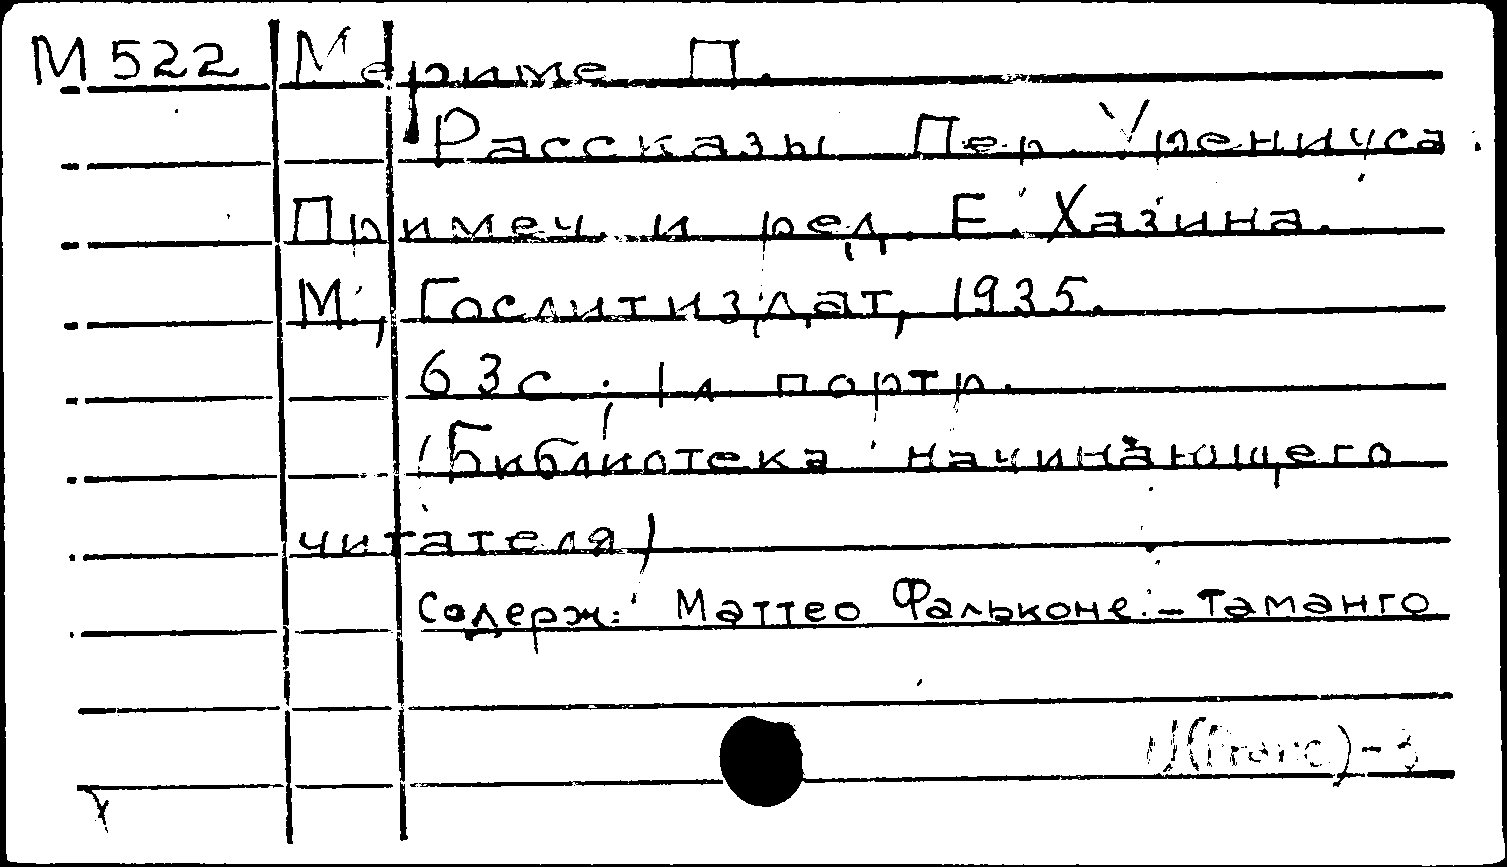 М 522 Мериме П.
Рассказы Пер. Урениуса.
Примеч. и ред. Е. Хазина.
М., Гослитиздат, 1935.
63 с.; 1 л портр.
(Библиотека начинающего
читателя)
Содерж.: Маттео Фальконе. – Таманго
U(Franc)-3